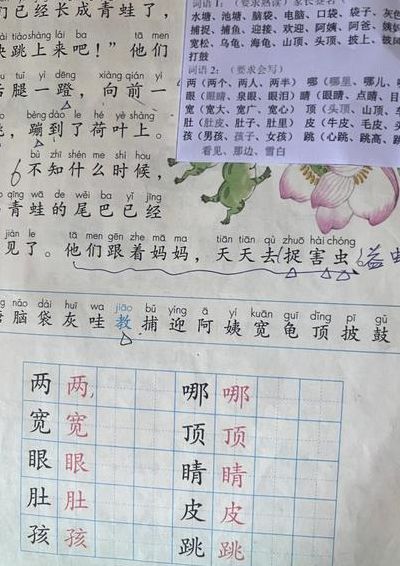 们已经长成青蛙了，
tiào shàng lái ba tā men
快跳上来吧！” 他们
tuǐ yì dēng xiàng qián yí
后腿一蹬，向前一
bèng dào le hé yè shàng
，蹦到了荷叶上。
bù zhī shén me shí hou
6 不知什么时候，
qīng wā de wěi ba yǐ jīng
青蛙的尾巴已经
jiàn le tā men gēn zhe mā ma tiān tiān qù zhuō hài chóng
见了。他们跟着妈妈，天天去捉害虫
益虫
词语 1：（要求熟读）家长签名
水塘、池塘、脑袋、电脑、口袋、袋子、灰色
捕捉、捕鱼、迎接、欢迎、阿姨、阿爸、
宽松、乌龟、海龟、山顶、头顶、披上、披
打鼓
词语 2：（要求会写）
两（两个、两人、两半） 哪（哪里、哪儿、
眼（眼睛、泉眼、眼泪）睛（眼睛、点睛、目
宽（宽大、宽广、宽心）顶（头顶、山顶、
肚（肚皮、肚子、肚里）皮（牛皮、毛皮、
孩（男孩、孩子、女孩）跳（心跳、跳高、跳
看见、那边、雪白
nǎo dài huī wa jiāo bǔ yíng ā yí kuān guī dǐng pī gǔ
塘脑袋灰哇教捕迎阿姨宽龟顶披鼓
两 两 哪 哪
宽 宽 顶 顶
眼 眼 睛 睛
肚 肚 皮 皮
孩 孩 跳 跳